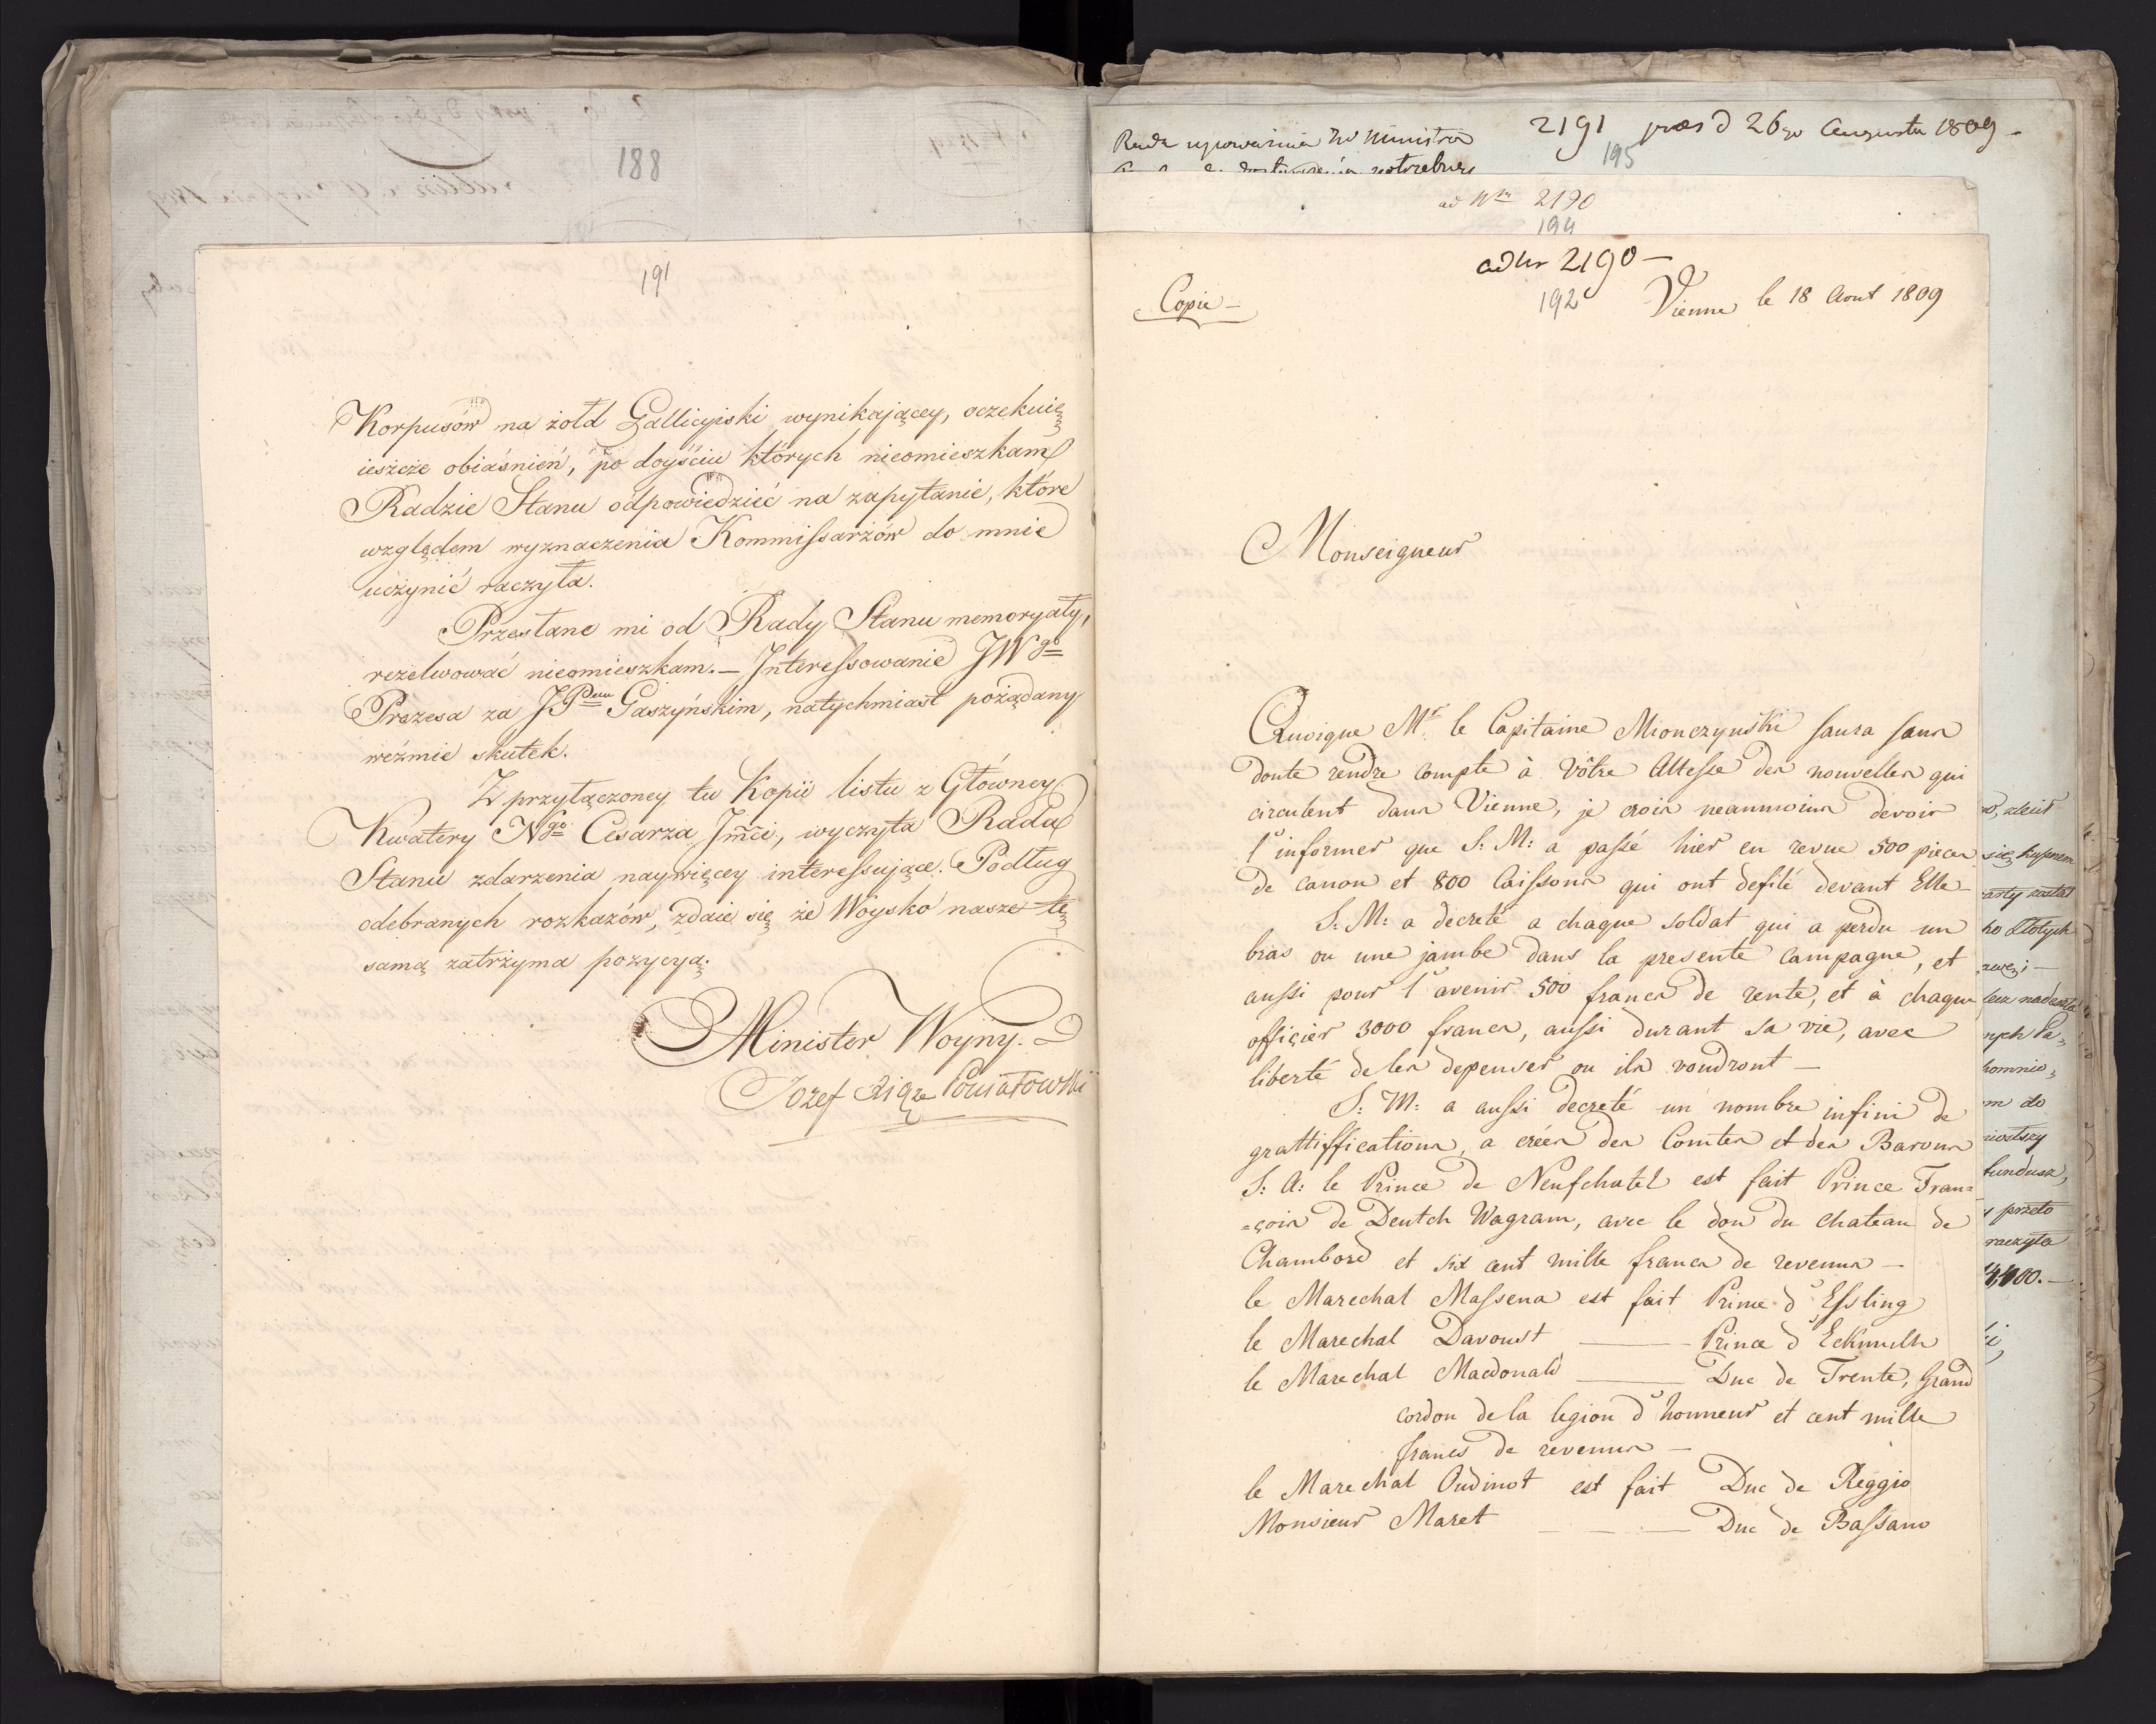 188
191
Korpusów na żołd Gallicyiski wynikaiącey, oczekuię
ieszcze obiaśnień, po doyściu których nieomieszkam
Radzie Stanu odpowiedzieć na zapytanie, które
względem wyznaczenia Kommissarzów do mnie
uczynić raczyła.
Przesłane mi od Rady Stanu memoryały,
rezolwować nieomieszkam. — Interessowanie JWgo
Prezesa za JPem Gaszyńskim, natychmiast pożądany
weźmie skutek.
Z przyłączoney tu Kopii listu z Główney
Kwatery Ngo Cesarza Jmći, wyczyta Rada
Stanu zdarzenia naywięcey interessuiące. Podług
odebranych rozkazów, zdaie się że Woysko nasze tę
samą zatrzyma pozycyą.
Minister Woyny.
Jozef Xiąze Poniatowski
2191 præs d 26go Augusta 1809 —
Rada upoważnia Ministra
195
potrzebney
ad Nrm 2190
194
ad Nr 2190 —
192
Copie —
Vienne le 18 Aout 1809
Monseigneur
Quoique Mr. le Capitaine Mionczynski saura sans
doute rendre compte à Vôtre Altesse des nouvelles qui
circulent dans Vienne, je crois neanmoins devoir
l'informer que S: M: a passé hier en revue 500 pieces
de canon et 800 Caissons qui ont defilé devant Elle —
S: M: a decreté a chaque soldat qui a perdu un
bras ou une jambe dans la presente Campagne, et
aussi pour l'avenir 500 francs de rente, et à chaque
officier 3000 francs, aussi durant sa vie, avec
liberté de les depenser ou ils voudront —
S: M: a aussi decreté un nombre infini de
grattiffications, a créer des Comtes et des Barons
S: A: le Prince de Neufchatel est fait Prince Fran=
=çois de Deutch Wagram, avec le don du chateau de
Chambord et six cent mille francs de revenus —
le Marechal Massena est fait Prince d'Essling
le Marechal Davoust ——— Prince d'Eckmulh
le Marechal Macdonald ——— Duc de Trente, Grand
cordon de la legion d'honneur et cent mille
francs de revenus —
le Marechal Oudinot est fait Duc de Reggio
Monsieur Maret — — — Duc de Bassano
zlecił
się kupnem
został
ko Złotych
nadeszła
do
fundusz,
przeto
raczyła